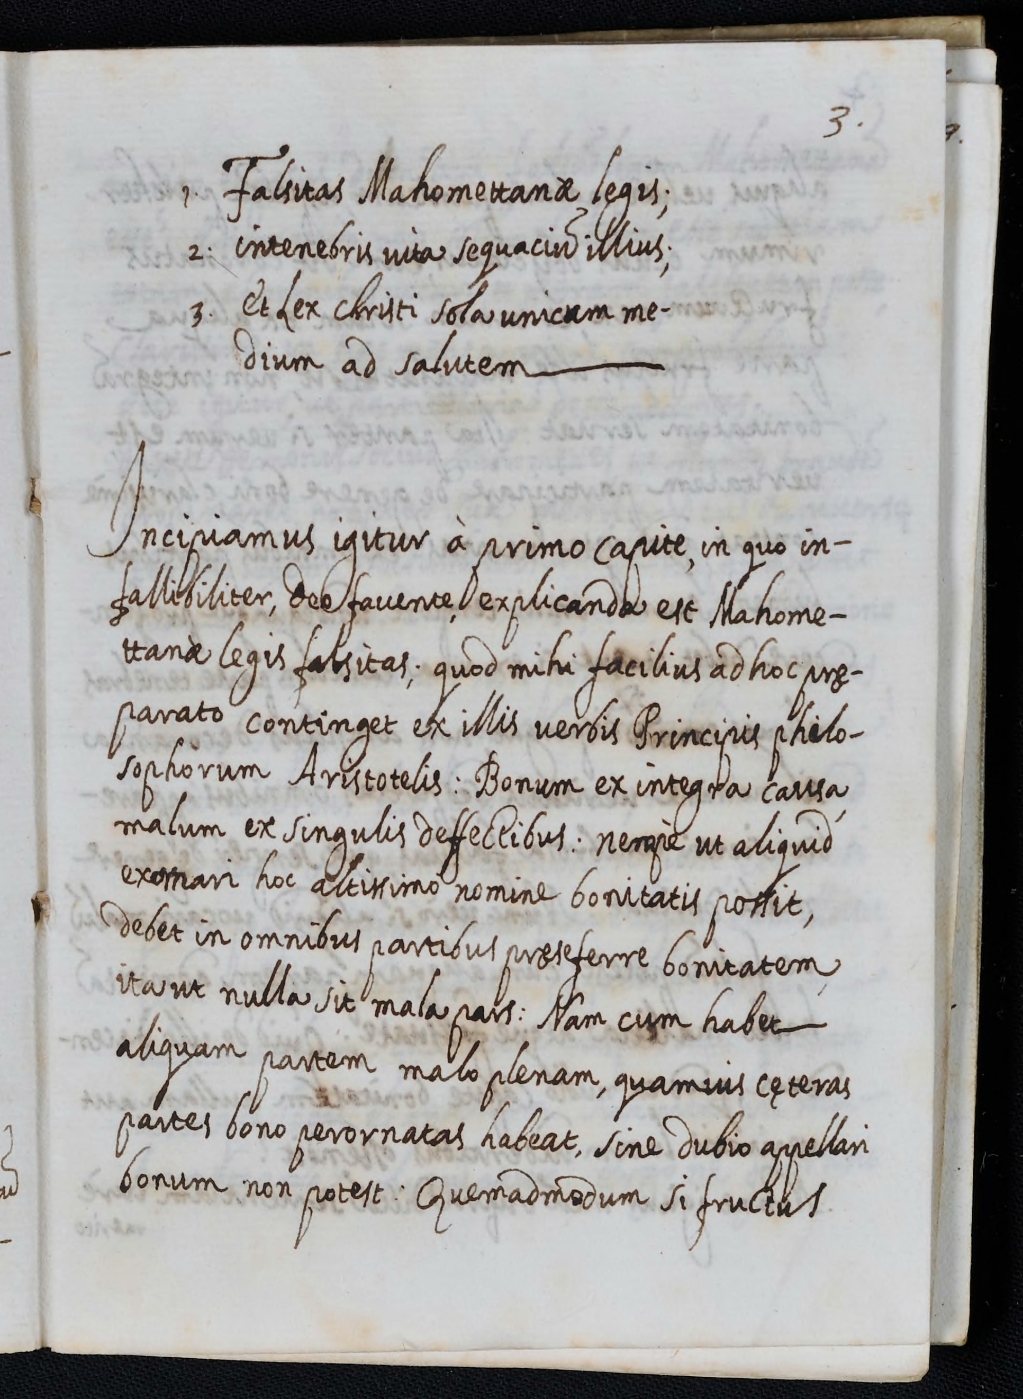 3.
1. Falsitas Mahomettanæ legis;
2. intenebris vita sequaciũ illius;
3. et Lex Christi sola unicum me-
dium ad salutem
Incipiamus igitur à primo capite, in quo in-
fallibiliter, Deo favente, explicanda est Mahome-
ttanæ legis falsitas; quod mihi facilius ad hoc prę-
parato continget ex illis verbis Principis philo-
sophorum Aristotelis: Bonum ex integra causa,
malum ex singulis deffectibus: nempe ut aliquid
exornari hoc altissimo nomine bonitatis possit,
debet in omnibus partibus pręseferre bonitatem,
ita ut nulla sit mala pars: Nam cum habet
aliquam partem malo plenam, quamvis cęteras
partes bono perornatas habeat, sine dubio appellari
bonum non potest: Quemadmodum si fructus